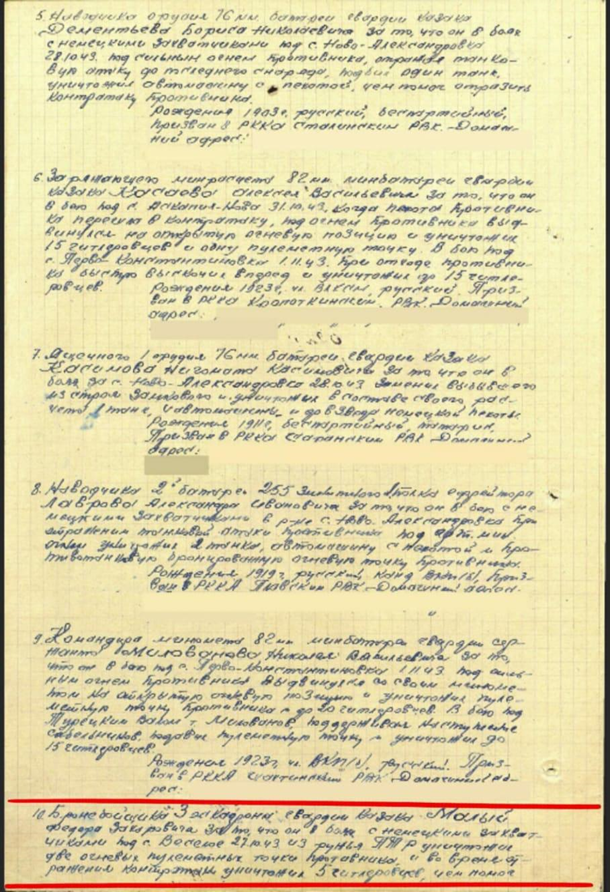 5. Наводчика орудия 76 мм. батареи гвардии казака
Дементьева Бориса Николаевича за то, что он в боях
с немецкими захватчиками под с. Ново-Александровка
28.10.43. под сильным огнем противника, отражая танко-
вую атаку до последнего снаряда, подбил один танк,
уничтожил автомашину с пехотой, чем помог отразить
контратаку противника.
Рождения 1903 г, русский, беспартийный,
призван в РККА Сталинским РВК. Домаш-
ний адрес:
6. Заряжающего минрасчета 82 мм. минбатареи гвардии
казака Касаева Алексея Васильевича за то, что он
в бою под с. Аскания-Нова 31.10.43. когда пехота противни-
ка перешла в контратаку, под огнем противника выд-
винулся на открытую огневую позицию и уничтожил
15 гитлеровцев и одну пулеметную точку. В бою под
с. Перво-Константиновка 1.11.43. При отходе противни-
ка быстро выскочил вперед и уничтожил до 15 гитле-
ровцев.
Рождения 1923 г. чл. ВЛКСМ, русский. Приз-
ван в РККА Кропоткинским РВК. Домашний
адрес:
7. Ящичного 1 орудия 76 мм. батареи гвардии казака
Касимова Нигомата Касимовича за то что он в
боях за с. Ново-Александровка 28.10.43 заменил выбывшего
из строя замкового и уничтожил в составе своего рас-
чета 1 танк, автомашины и до взвода немецкой пехоты
Рождения 1911 г, беспартийный, татарин.
Призван в РККА РВК Домашний
адрес:
8. Наводчика 2й батареи 255 Зенитного полка ефрейтора
Лаврова Александра Ивановича за то что он в бою с не-
мецкими захватчиками в р-не с. Ново. Александровка при
отражении танковой атаки противника под арт. мин
огнем уничтожил 2 танка, автомашину с пехотой и про-
тивотанковую бронированную огневую точку противника.
Рождения 1919 г, русский, канд ВКП(б), Приз-
ван в РККА Плавским РВК Домашний адрес.
9. Командира миномета 82 мм минбатареи гвардии сер-
жанта Милованова Николая Васильевича за то,
что он в бою под с. Перво-Константиновка 1.11.43 под силь-
ным огнем противника выдвинулся со своим миноме-
том на открытую огневую позицию и уничтожил пуле-
метную точку противника и до 20 гитлеровцев. В бою под
Турецким Валом т. Милованов поддерживая наступление
сабельников подавил пулеметную точку и уничтожил до
15 гитлеровцев.
Рождения 1923 г, чл. ВКП(б), русский. Приз-
ван в РККА Шахтинским РВК Домашний ад-
рес:
10. Бронебойщика 3 эскадрона гвардии казака Малый
Федора Захаровича за то, что он в боях с немецкими захват-
чиками под с. Веселое 27.10.43 из ружья ПТР уничтожил
две огневых пулеметных точки противника, и во время от-
ражения контратаки уничтожил 5 гитлеровцев, чем помог